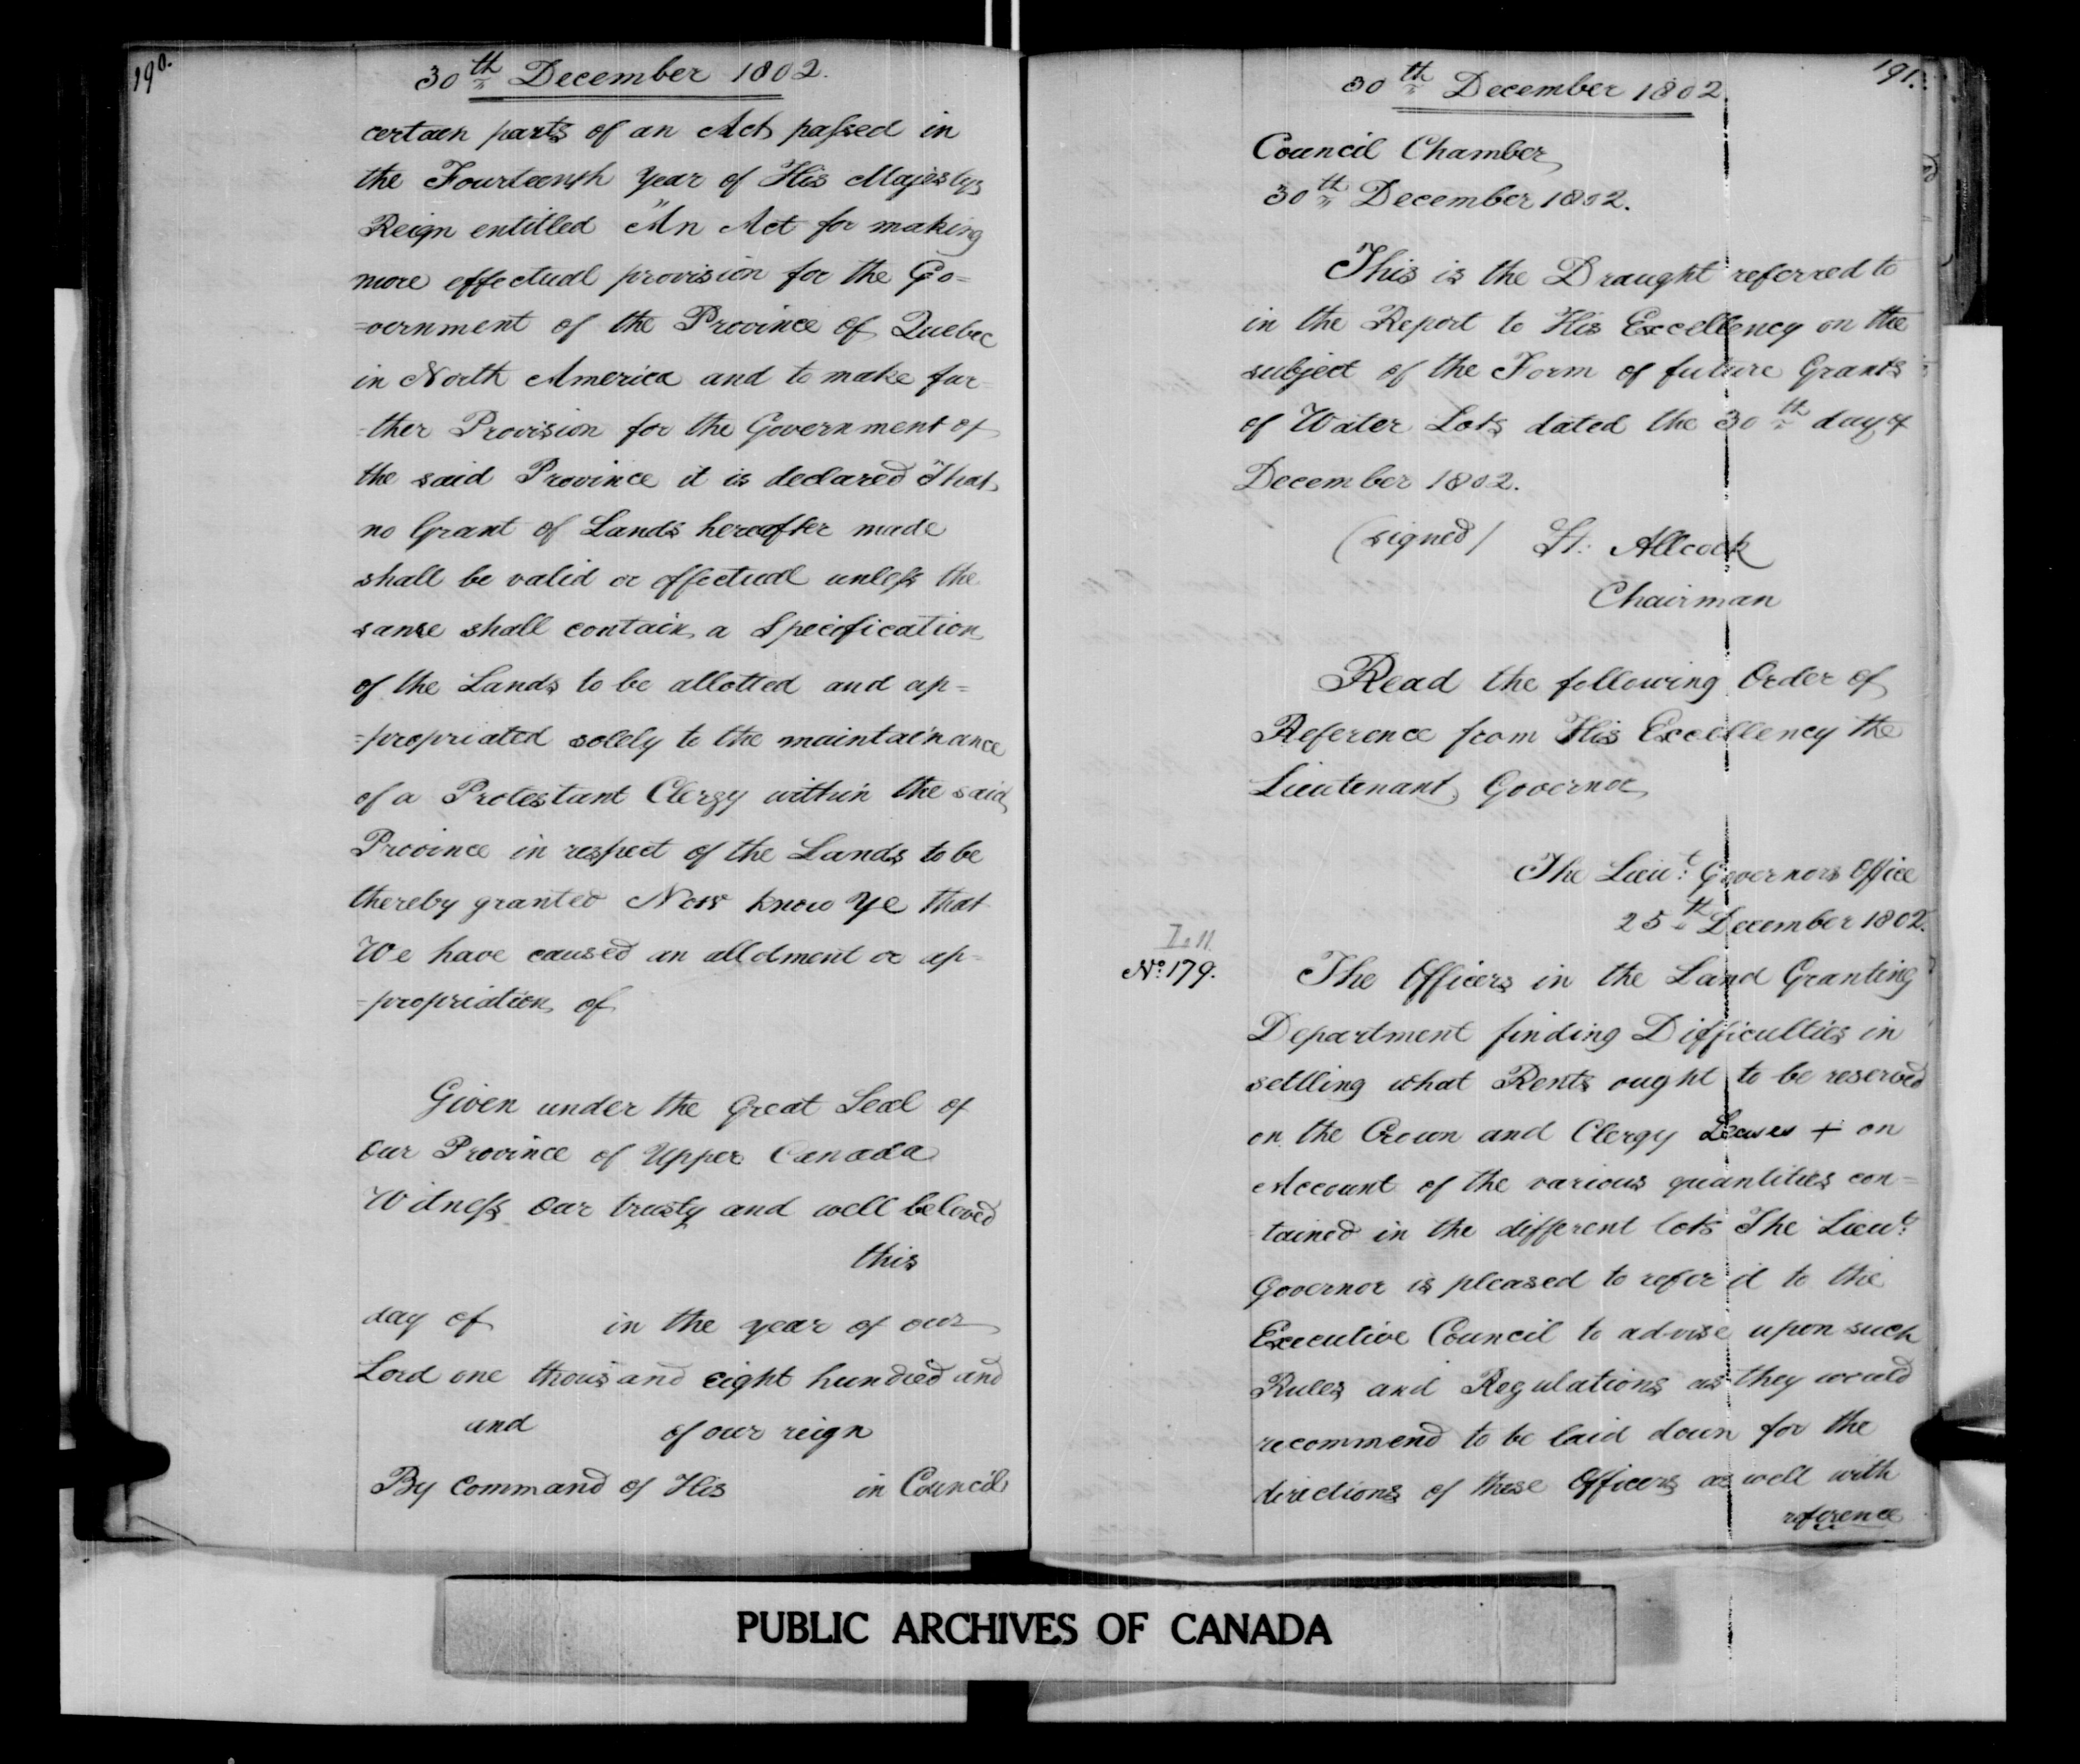 190.
30th December 1802.
certain parts of an Act passed in
the Fourteenth year of His Majestys
Reign entitled "An Act for making
more effectual provision for the Go=
=vernment of the Province of Quebec
in North America and to make fur
=ther Provision for the Government of
the said Province it is declared That
no Grant of Lands hereafter made
shall be valid or effectual unless the
same shall contain a Specification
of the Lands to be allotted and ap=
=propriated solely to the maintainance
of a Protestant Clergy within the said
Province in respect of the Lands to be
thereby granted Now know Ye that
We have caused an allotment or ap=
=propriation of
Given under the Great Seal of
Our Province of Upper Canada
Witness Our trusty and well beloved
this
day of in the year of our
Lord one thousand eight hundred and
and of our reign
By Command of His in Council
191.
30th December 1802.
Council Chamber
30th December 1802.
This is the Draught referred to
in the Report to His Excellency on the
subject of the Form of future Grants
of Water Lots dated the 30th day of
December 1802.
(signed) H: Allcock
Chairman
Read the following Order of
Reference from His Excellency the
Lieutenant Governor
The Lieut. Governors Office
25th December 1802.
No. 179.
The Officers in the Land Granting
Department finding Difficulties in
settling what Rents ought to be reserved
on the Crown and Clergy Leases + on
Account of the various quantities con=
=tained in the different lots The Lieut.
Governor is pleased to refer it to the
Executive Council to advise upon such
Rules and Regulations as they would
recommend to be laid down for the
directions of these Officers as well with
reference
PUBLIC ARCHIVES OF CANADA